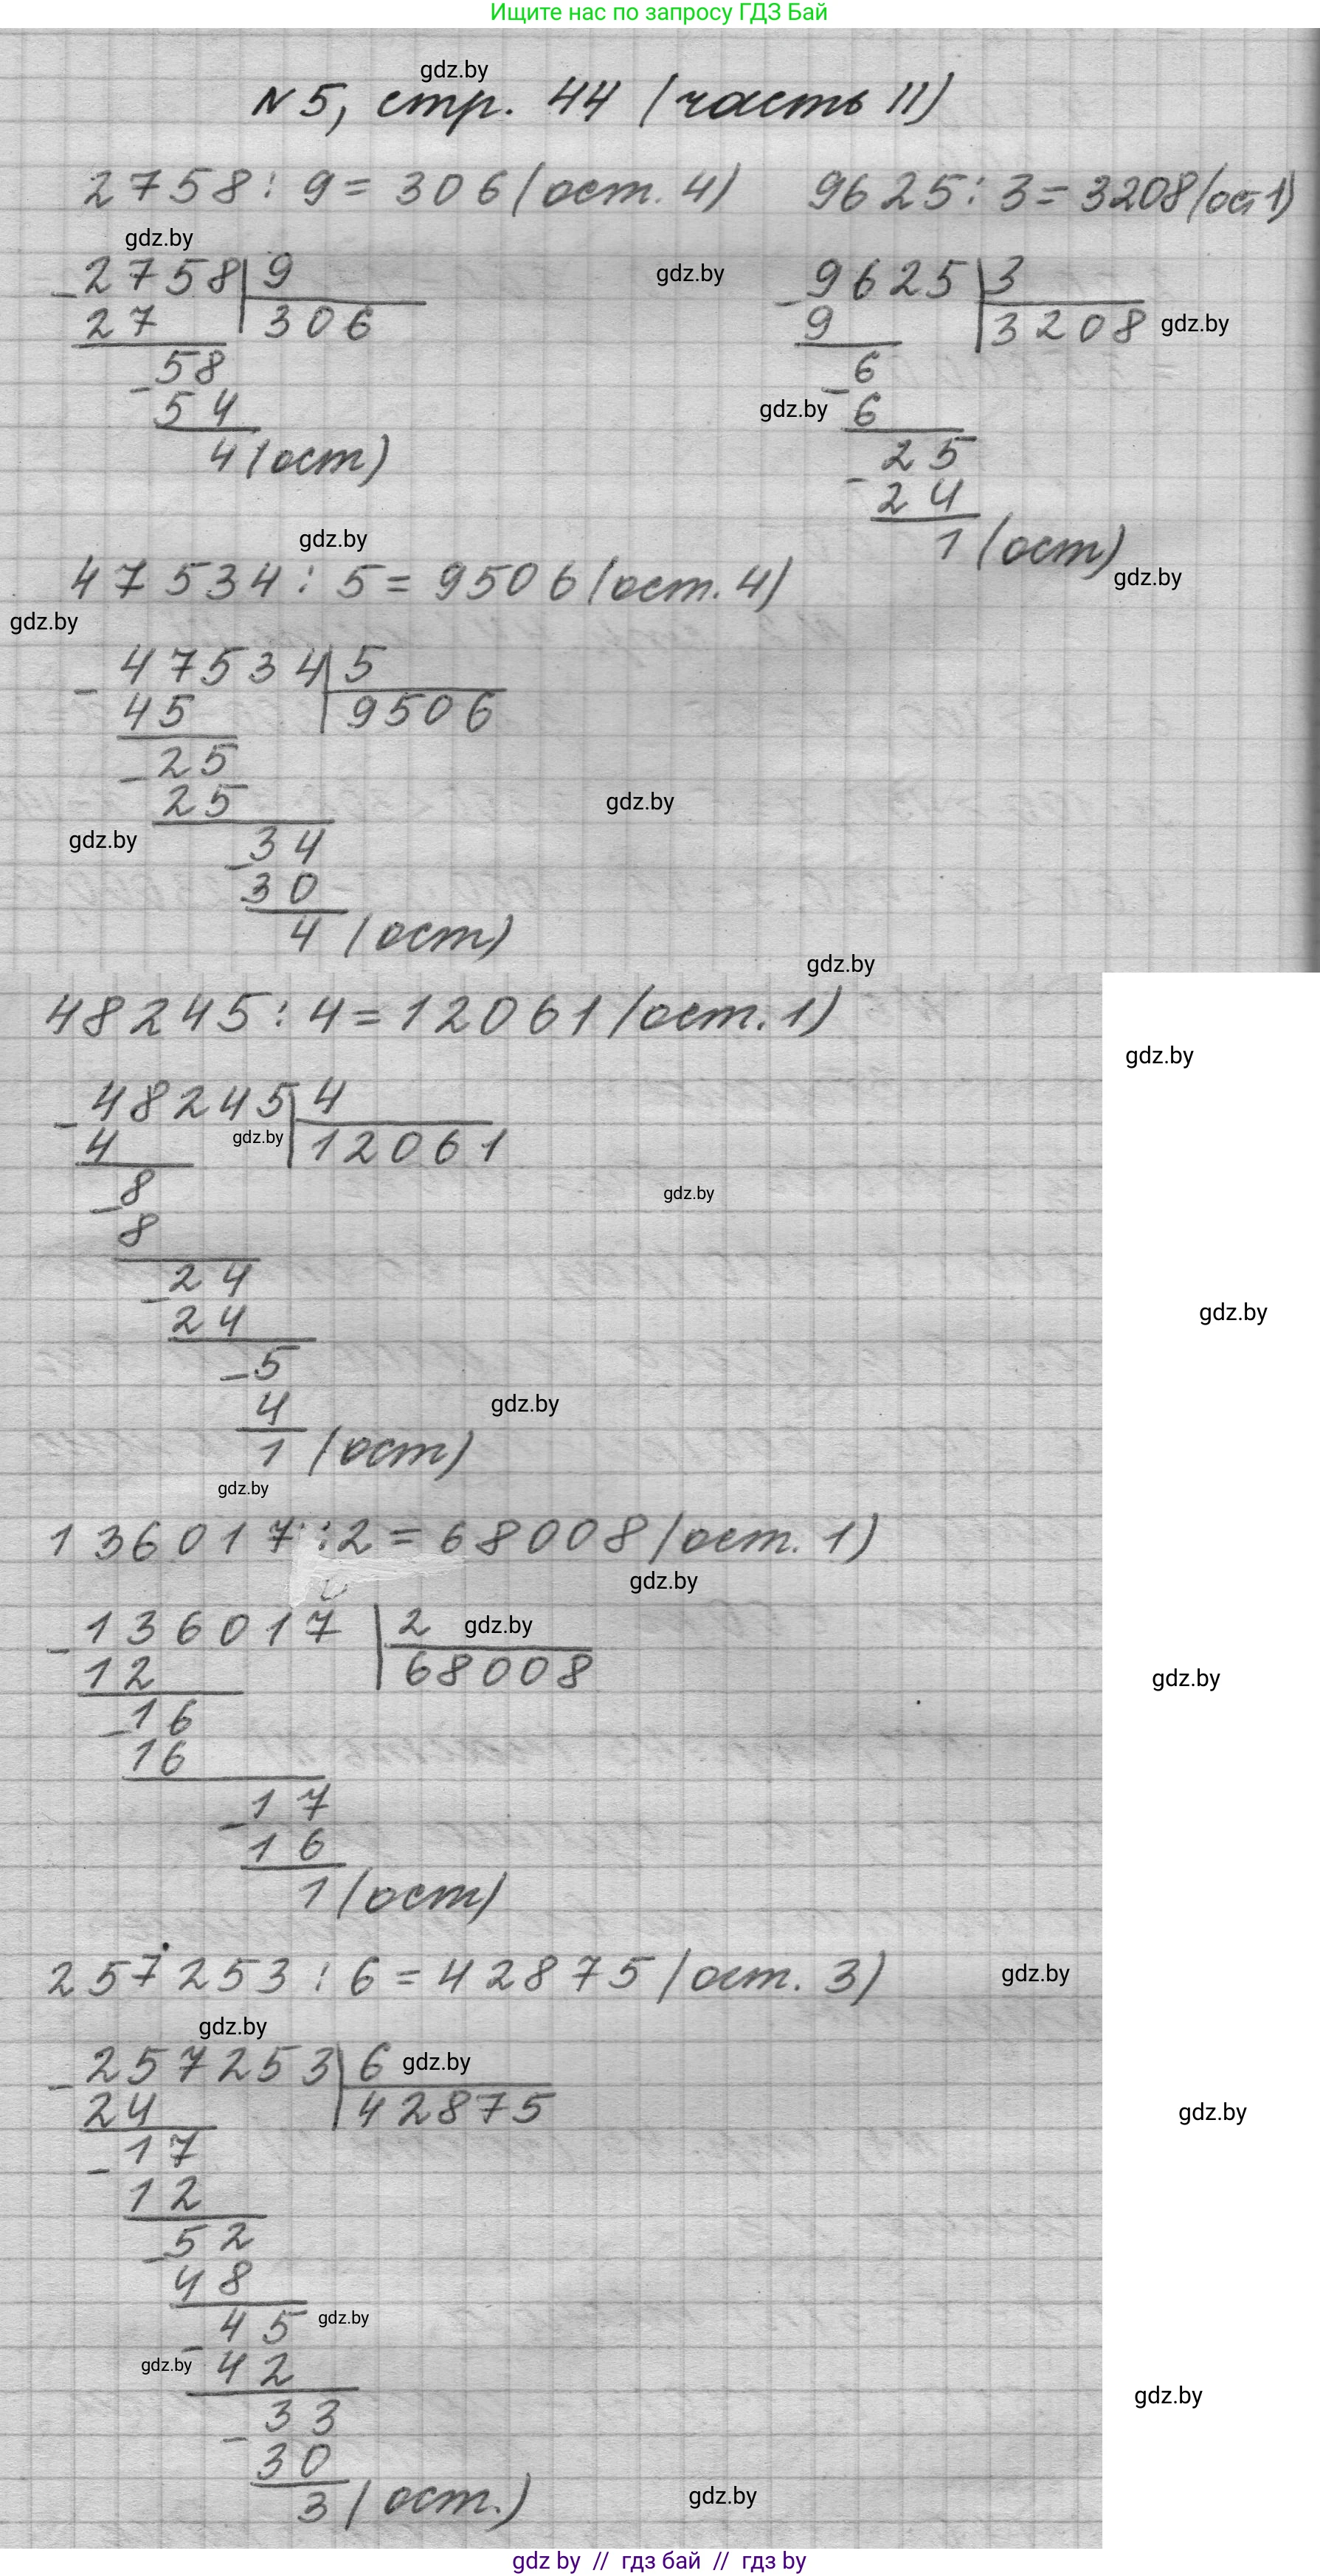 Ищите нас по запросу ГДЗ Бай
gdz.by
№5, стр. 44 (часть II)
2758 : 9 = 306 (ост. 4)
9625 : 3 = 3208 (ос 1)
gdz.by
gdz.by
- 2758 | 9
27 | 306
- 58
54
4 (ост)
- 9625 | 3
9 | 3208 gdz.by
- 6
gdz.by 6
- 25
24
1 (ост)
gdz.by
gdz.by
47534 : 5 = 9506 (ост. 4)
gdz.by
- 47534 | 5
45 | 9506
- 25
25
gdz.by
gdz.by
- 34
30
4 (ост)
gdz.by
48245 : 4 = 12061 (ост. 1)
gdz.by
- 48245 | 4
4 gdz.by | 12061
- 8
gdz.by
8
- 24
24
gdz.by
- 5
4
gdz.by
1 (ост)
gdz.by
136017 : 2 = 68008 (ост. 1)
gdz.by
- 136017 | 2 gdz.by
12 | 68008
gdz.by
- 16
16
- 17
16
1 (ост)
257253 : 6 = 42875 (ост. 3)
gdz.by
gdz.by
- 257253 | 6 gdz.by
24 | 42875
gdz.by
- 17
12
- 52
48
- 45 gdz.by
gdz.by 42
gdz.by
- 33
30
3 (ост.)
gdz.by
gdz by // гдз бай // гдз by